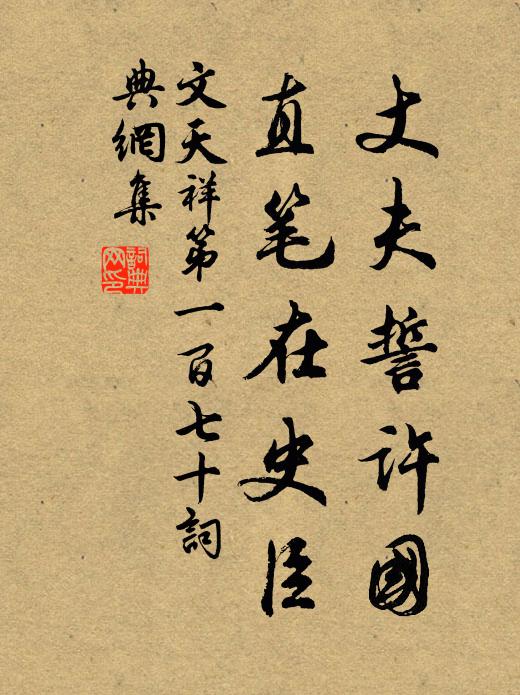 丈夫誓许國
直笔在史臣
文天祥第一百七十詞
典網集
詞典网印